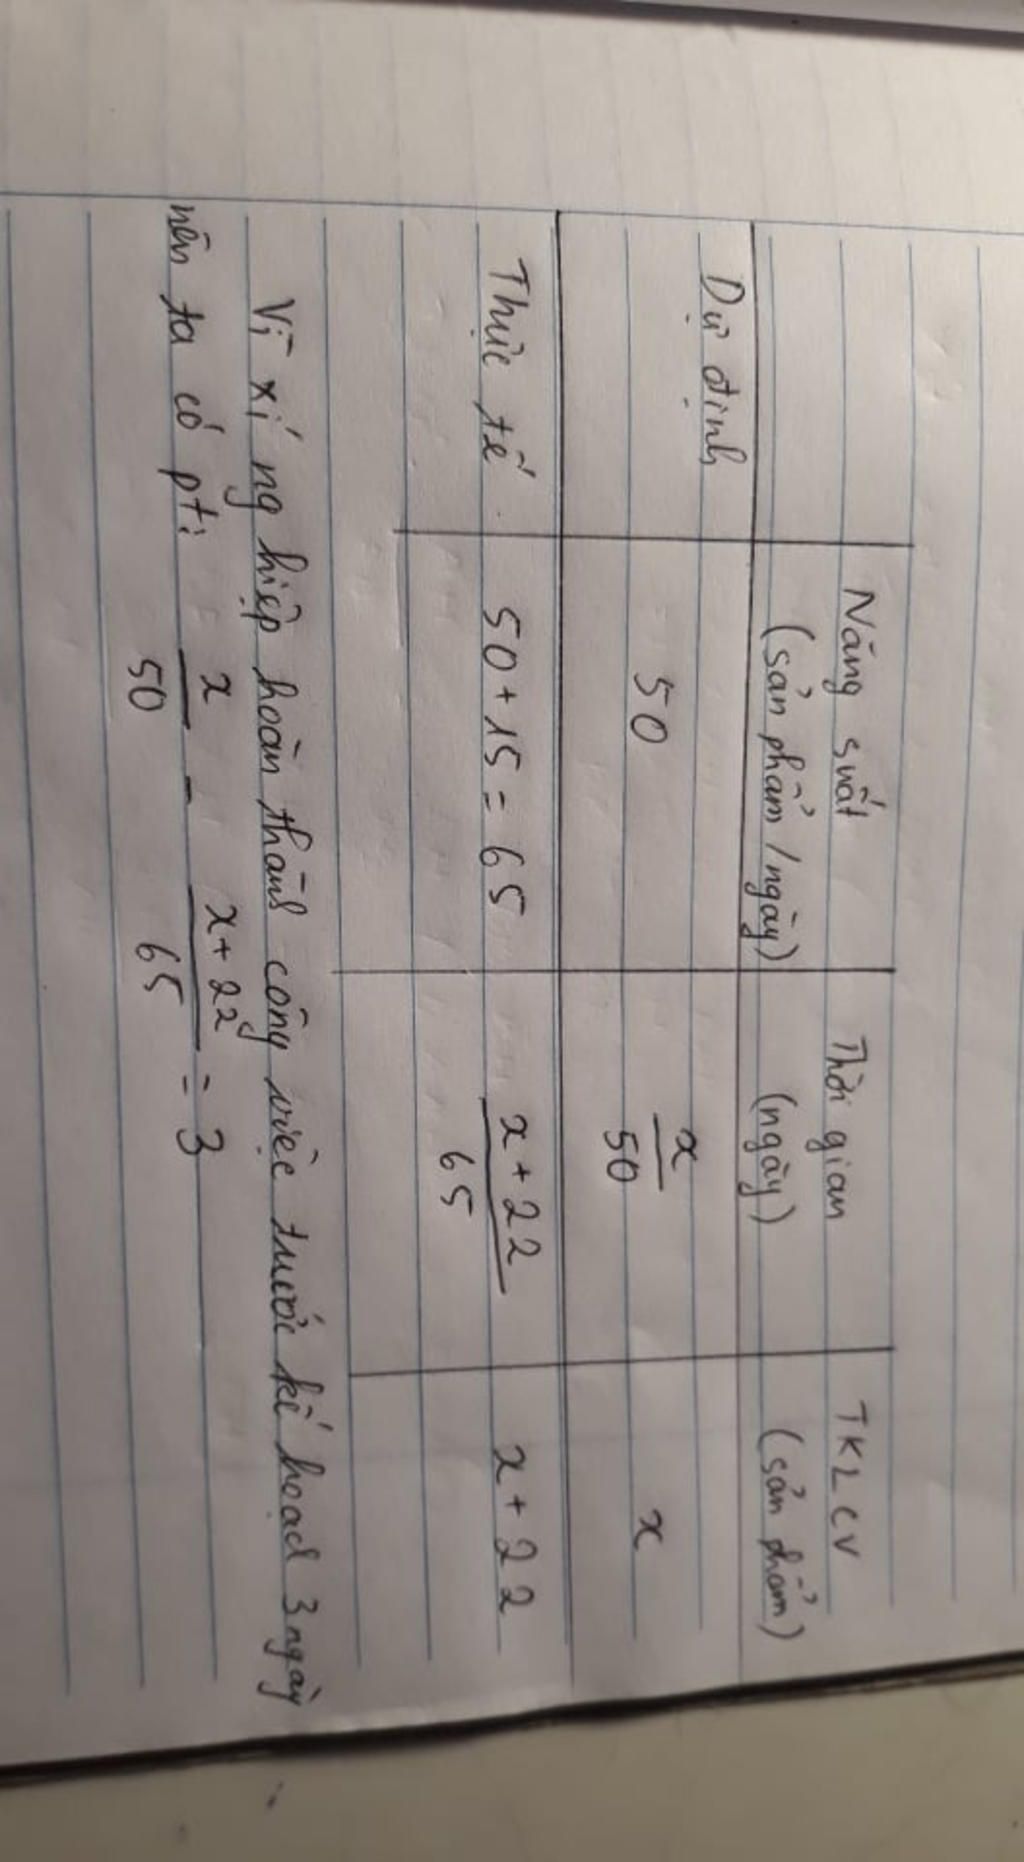 Năng suất Thời gian TKLCV
(sản phẩm/ngày) (ngày) (sản phẩm)
Dự định 50 x/50 x
Thực tế 50 + 15 = 65 x + 22/65 x + 22
Vì xí nghiệp hoàn thành công việc trước kế hoạch 3 ngày
nên ta có pt: x/50 - x + 22/65 = 3